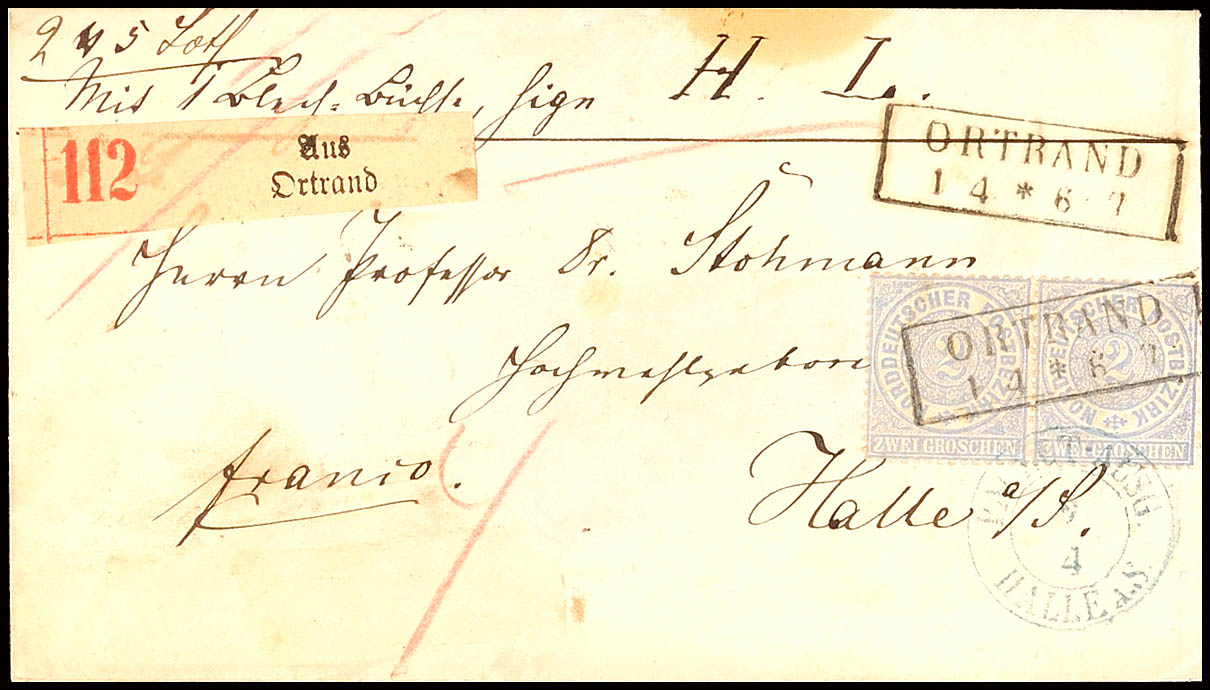 2 ℔ 5 Loth
Mit 1 Blech=Büchse, sign H. L.
112
Aus
Ortrand
ORTRAND
1 4 * 6 7
Herrn Professor Dr. Stohmann
NORDDEUTSCHER POSTBEZIRK
2
ZWEI GROSCHEN
NORDDEUTSCHER POSTBEZIRK
2
ZWEI GROSCHEN
ORTRAND
1 4 * 6 7
Hochwohlgeboren
franco.
Halle a/S.
4
HALLE a.S.